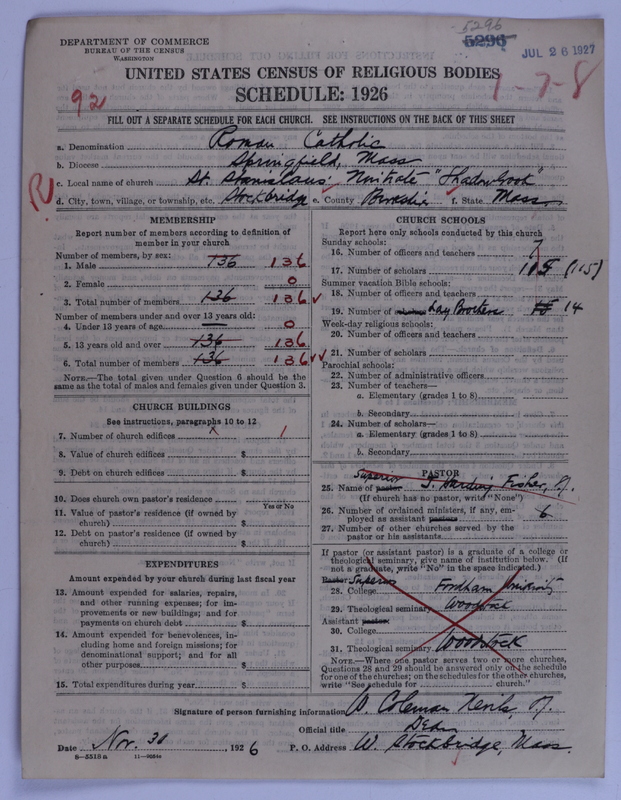 5296
5296
JUL 26 1927
DEPARTMENT OF COMMERCE
BUREAU OF THE CENSUS
WASHINGTON
UNITED STATES CENSUS OF RELIGIOUS BODIES
SCHEDULE: 1926
92
1-7-8
FILL OUT A SEPARATE SCHEDULE FOR EACH CHURCH. SEE INSTRUCTIONS ON THE BACK OF THIS SHEET
a. Denomination Roman Catholic
b. Diocese Springfield, Mass
c. Local name of church St. Stanislaus' Novitiate "Shadowbrook"
R
d. City, town, village, or township, etc. Stockbridge e. County Berkshire f. State Mass
MEMBERSHIP
Report number of members according to definition of
member in your church
Number of members, by sex:
1. Male 136 136
2. Female 0
3. Total number of members 136 136
Number of members under and over 13 years old:
4. Under 13 years of age 0
5. 13 years old and over 136 136
6. Total number of members 136 136
NOTE.—The total given under Question 6 should be the
same as the total of males and females given under Question 3.
CHURCH BUILDINGS
See instructions, paragraphs 10 to 12
7. Number of church edifices 1
8. Value of church edifices $
9. Debt on church edifices $
10. Does church own pastor's residence
Yes or No
11. Value of pastor's residence (if owned by
church) $
12. Debt on pastor's residence (if owned by
church) $
EXPENDITURES
Amount expended by your church during last fiscal year
13. Amount expended for salaries, repairs,
and other running expenses; for im-
provements or new buildings; and for
payments on church debt $
14. Amount expended for benevolences, in-
cluding home and foreign missions; for
denominational support; and for all
other purposes $
15. Total expenditures during year $
CHURCH SCHOOLS
Report here only schools conducted by this church
Sunday schools:
16. Number of officers and teachers 7
17. Number of scholars 115 (115)
Summer vacation Bible schools:
18. Number of officers and teachers
19. Number of Lay Brothers 14
Week-day religious schools:
20. Number of officers and teachers
21. Number of scholars
Parochial schools:
22. Number of administrative officers
23. Number of teachers—
a. Elementary (grades 1 to 8)
b. Secondary
24. Number of scholars—
a. Elementary (grades 1 to 8)
b. Secondary
PASTOR
Superior
25. Name of pastor J. Harding Fisher, SJ.
(If church has no pastor, write "None")
26. Number of ordained ministers, if any, em-
ployed as assistant pastors 6
27. Number of other churches served by the
pastor or his assistants
If pastor (or assistant pastor) is a graduate of a college or
theological seminary, give name of institution below. (If
not a graduate, write "No" in the space indicated.)
Pastor Superior
28. College Fordham University
29. Theological seminary Woodstock
Assistant pastor
30. College
31. Theological seminary Woodstock
NOTE.—Where one pastor serves two or more churches,
Questions 28 and 29 should be answered only on the schedule
for one of the churches; on the schedules for the other churches,
write "See schedule for church."
Signature of person furnishing information D. Coleman Nevils, SJ.
Official title Dean
Date Nov. 30, 1926 P. O. Address W. Stockbridge, Mass.
8-5518a